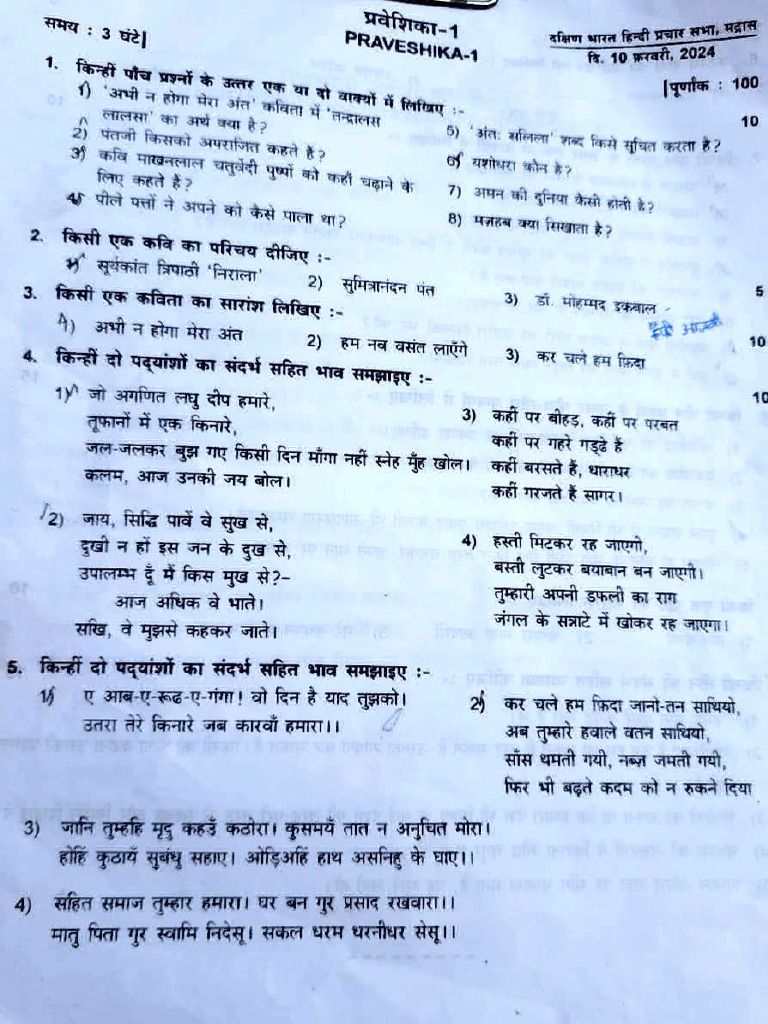 प्रवेशिका-1
PRAVESHIKA-1
समय : 3 घंटे|
दक्षिण भारत हिन्दी प्रचार सभा, मद्रास
दि. 10 फ़रवरी, 2024
|पूर्णांक : 100
1. किन्हीं पाँच प्रश्नों के उत्तर एक या दो वाक्यों में लिखिए :- 10
1) 'अभी न होगा मेरा अंत' कविता में 'तन्द्रालस
लालसा' का अर्थ क्या है?
2) पंतजी किसको अपराजित कहते हैं?
3) कवि माखनलाल चतुर्वेदी पुष्पों को कहाँ चढ़ाने के
लिए कहते हैं?
4) पीले पत्तों ने अपने को कैसे पाला था?
5) 'अंतः सलिला' शब्द किसे सूचित करता है?
6) यशोधरा कौन है?
7) अमन की दुनिया कैसी होती है?
8) मज़हब क्या सिखाता है?
2. किसी एक कवि का परिचय दीजिए :- 5
1) सूर्यकांत त्रिपाठी 'निराला'
2) सुमित्रानंदन पंत
3) डॉ. मोहम्मद इकबाल
3. किसी एक कविता का सारांश लिखिए :- 10
1) अभी न होगा मेरा अंत
2) हम नव वसंत लाएँगे
3) कर चले हम फ़िदा
4. किन्हीं दो पद्यांशों का संदर्भ सहित भाव समझाइए :- 10
1) जो अगणित लघु दीप हमारे,
तूफानों में एक किनारे,
जल-जलकर बुझ गए किसी दिन माँगा नहीं स्नेह मुँह खोल।
कलम, आज उनकी जय बोल।
2) जाय, सिद्धि पावें वे सुख से,
दुखी न हों इस जन के दुख से,
उपालम्भ दूँ मैं किस मुख से?-
आज अधिक वे भाते।
सखि, वे मुझसे कहकर जाते।
3) कहीं पर बीहड़, कहीं पर परबत
कहीं पर गहरे गड्ढे है
कहीं बरसते हैं, धाराधर
कहीं गरजते हैं सागर।
4) हस्ती मिटकर रह जाएगी,
बस्ती लुटकर बयाबान बन जाएगी।
तुम्हारी अपनी डफली का राग
जंगल के सन्नाटे में खोकर रह जाएगा।
5. किन्हीं दो पद्यांशों का संदर्भ सहित भाव समझाइए :-
1) ए आब-ए-रूढ-ए-गंगा! वो दिन है याद तुझको।
उतरा तेरे किनारे जब कारवाँ हमारा।।
2) कर चले हम फ़िदा जानो-तन साथियो,
अब तुम्हारे हवाले वतन साथियो,
साँस थमती गयी, नब्ज़ जमती गयी,
फिर भी बढ़ते कदम को न रुकने दिया
3) जानि तुम्हहि मृदु कहउँ कठोरा। कुसमयँ तात न अनुचित मोरा।
होहिं कुठायँ सुबंधु सहाए। ओड़िअहिं हाथ असनिहु के घाए।।
4) सहित समाज तुम्हार हमारा। घर बन गुर प्रसाद रखवारा।।
मातु पिता गुर स्वामि निदेसू। सकल धरम धरनीधर सेसू।।